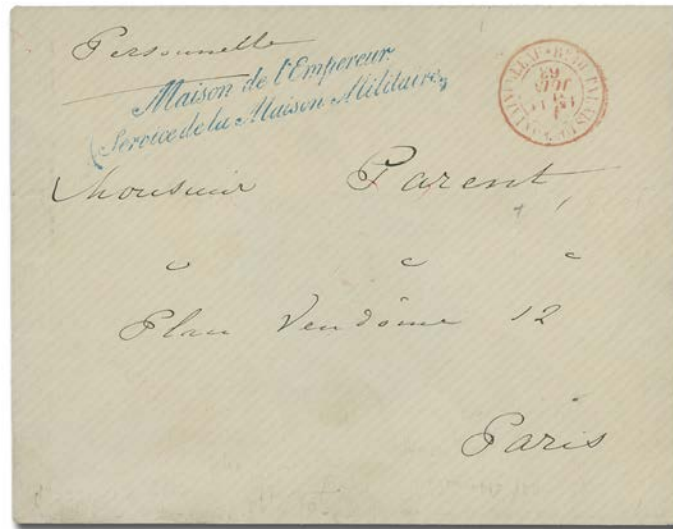 Personnelle
Maison de l'Empereur.
(Service de la Maison Militaire)
Monsieur Parent,
" " "
Place Vendôme 12
Paris